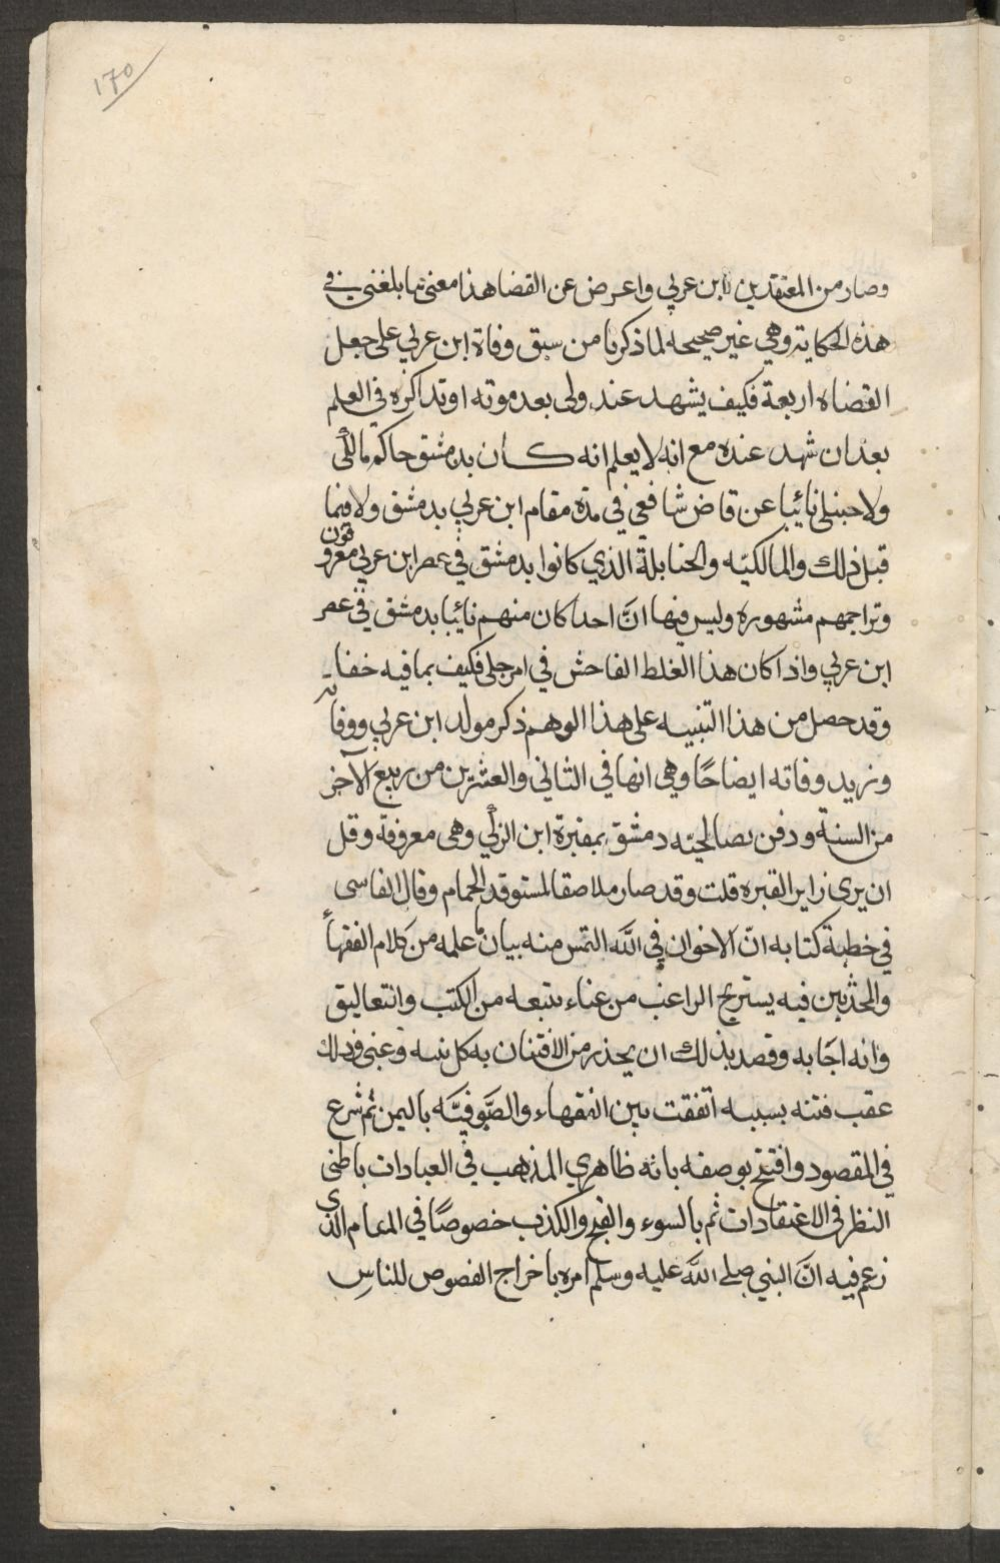 ١٦٥
وصار من المعتقدين لابن عربي واعرض عن القضا هذا معنى ما بلغني في
هذه الحكاية وهي غير صحيحه لما ذكرنا من سبق وفاة ابن عربي على جعل
القضاه اربعة فكيف يشهد عند ولى بعد موته او تذاكره في العلم
بعد ان شهد عنده مع انه لا يعلم انه كان بدمشق حاكم مالكي
ولا حنبلي نائبا عن قاض شافعي في مدة مقام ابن عربي بدمشق ولا فيما
قبل ذلك والمالكيه والحنابلة الذي كانوا بدمشق في عصر ابن عربي معروفون
وتراجمهم مشهوره وليس فيها انَّ احدا كان منهم نائبا بدمشق في عصر
ابن عربي واذا كان هذا الغلط الفاحش في امر جلى فكيف بما فيه خفا
وقد حصل من هذا التنبيه على هذا الوهم ذكر مولد ابن عربي ووفاته
ونزيد وفاته ايضاحًا وهي انها في الثاني والعشرين من ربيع الآخر
من السنة ودفن بصالحيه دمشق بمقبرة ابن الزكي وهى معروفة وقل
ان يرى زاير القبره قلت وقد صار ملاصقا لمستوقد الحمام وقال الفاسى
في خطبة كتابه انّ الاخوان في اللّه التمس منه بيان ما علمه من كلام الفقهاء
والمحدثين فيه يستريح الراغب من عناء تتبعه من الكتب والتعاليق
وانه اجَابه وقصد بذلك ان يحذر من الافتتان به كل نبيه وغبى وذلك
عقب فتنه بسببه اتفقت بين الفقهاء والصَّوفيَّه باليمن ثم شرع
في المقصود وافتتح بوصفه بانه ظاهري المذهب في العبادات باطنى
النظر في الاعتقادات ثم بالسوء والقبح والكذب خصوصًا في المنام الذي
زعم فيه انَّ النبي صلى اللّه عليه وسلم امره باخراج الفصوص للناسِ